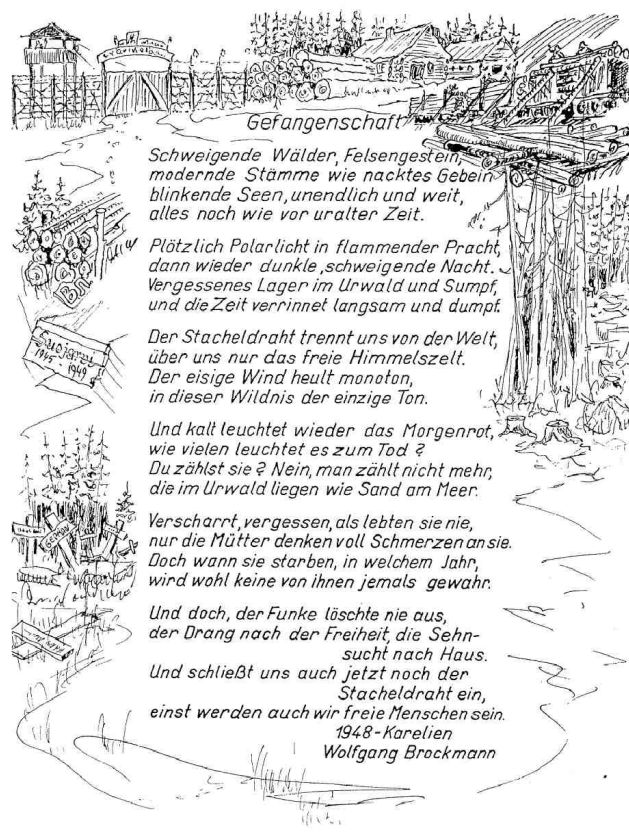 Gefangenschaft
Schweigende Wälder, Felsengestein,
modernde Stämme wie nacktes Gebein
blinkende Seen, unendlich und weit,
alles noch wie vor uralter Zeit.
Plötzlich Polarlicht in flammender Pracht,
dann wieder dunkle, schweigende Nacht.
Vergessenes Lager im Urwald und Sumpf,
und die Zeit verrinnet langsam und dumpf.
Der Stacheldraht trennt uns von der Welt,
über uns nur das freie Himmelszelt.
Der eisige Wind heult monoton,
in dieser Wildnis der einzige Ton.
Und kalt leuchtet wieder das Morgenrot,
wie vielen leuchtet es zum Tod ?
Du zählst sie ? Nein, man zählt nicht mehr,
die im Urwald liegen wie Sand am Meer.
Verscharrt, vergessen, als lebten sie nie,
nur die Mütter denken voll Schmerzen an sie.
Doch wann sie starben, in welchem Jahr,
wird wohl keine von ihnen jemals gewahr.
Und doch, der Funke löschte nie aus,
der Drang nach der Freiheit, die Sehn-
sucht nach Haus.
Und schließt uns auch jetzt noch der
Stacheldraht ein,
einst werden auch wir freie Menschen sein.
1948-Karelien
Wolfgang Brockmann
1945 - 1949